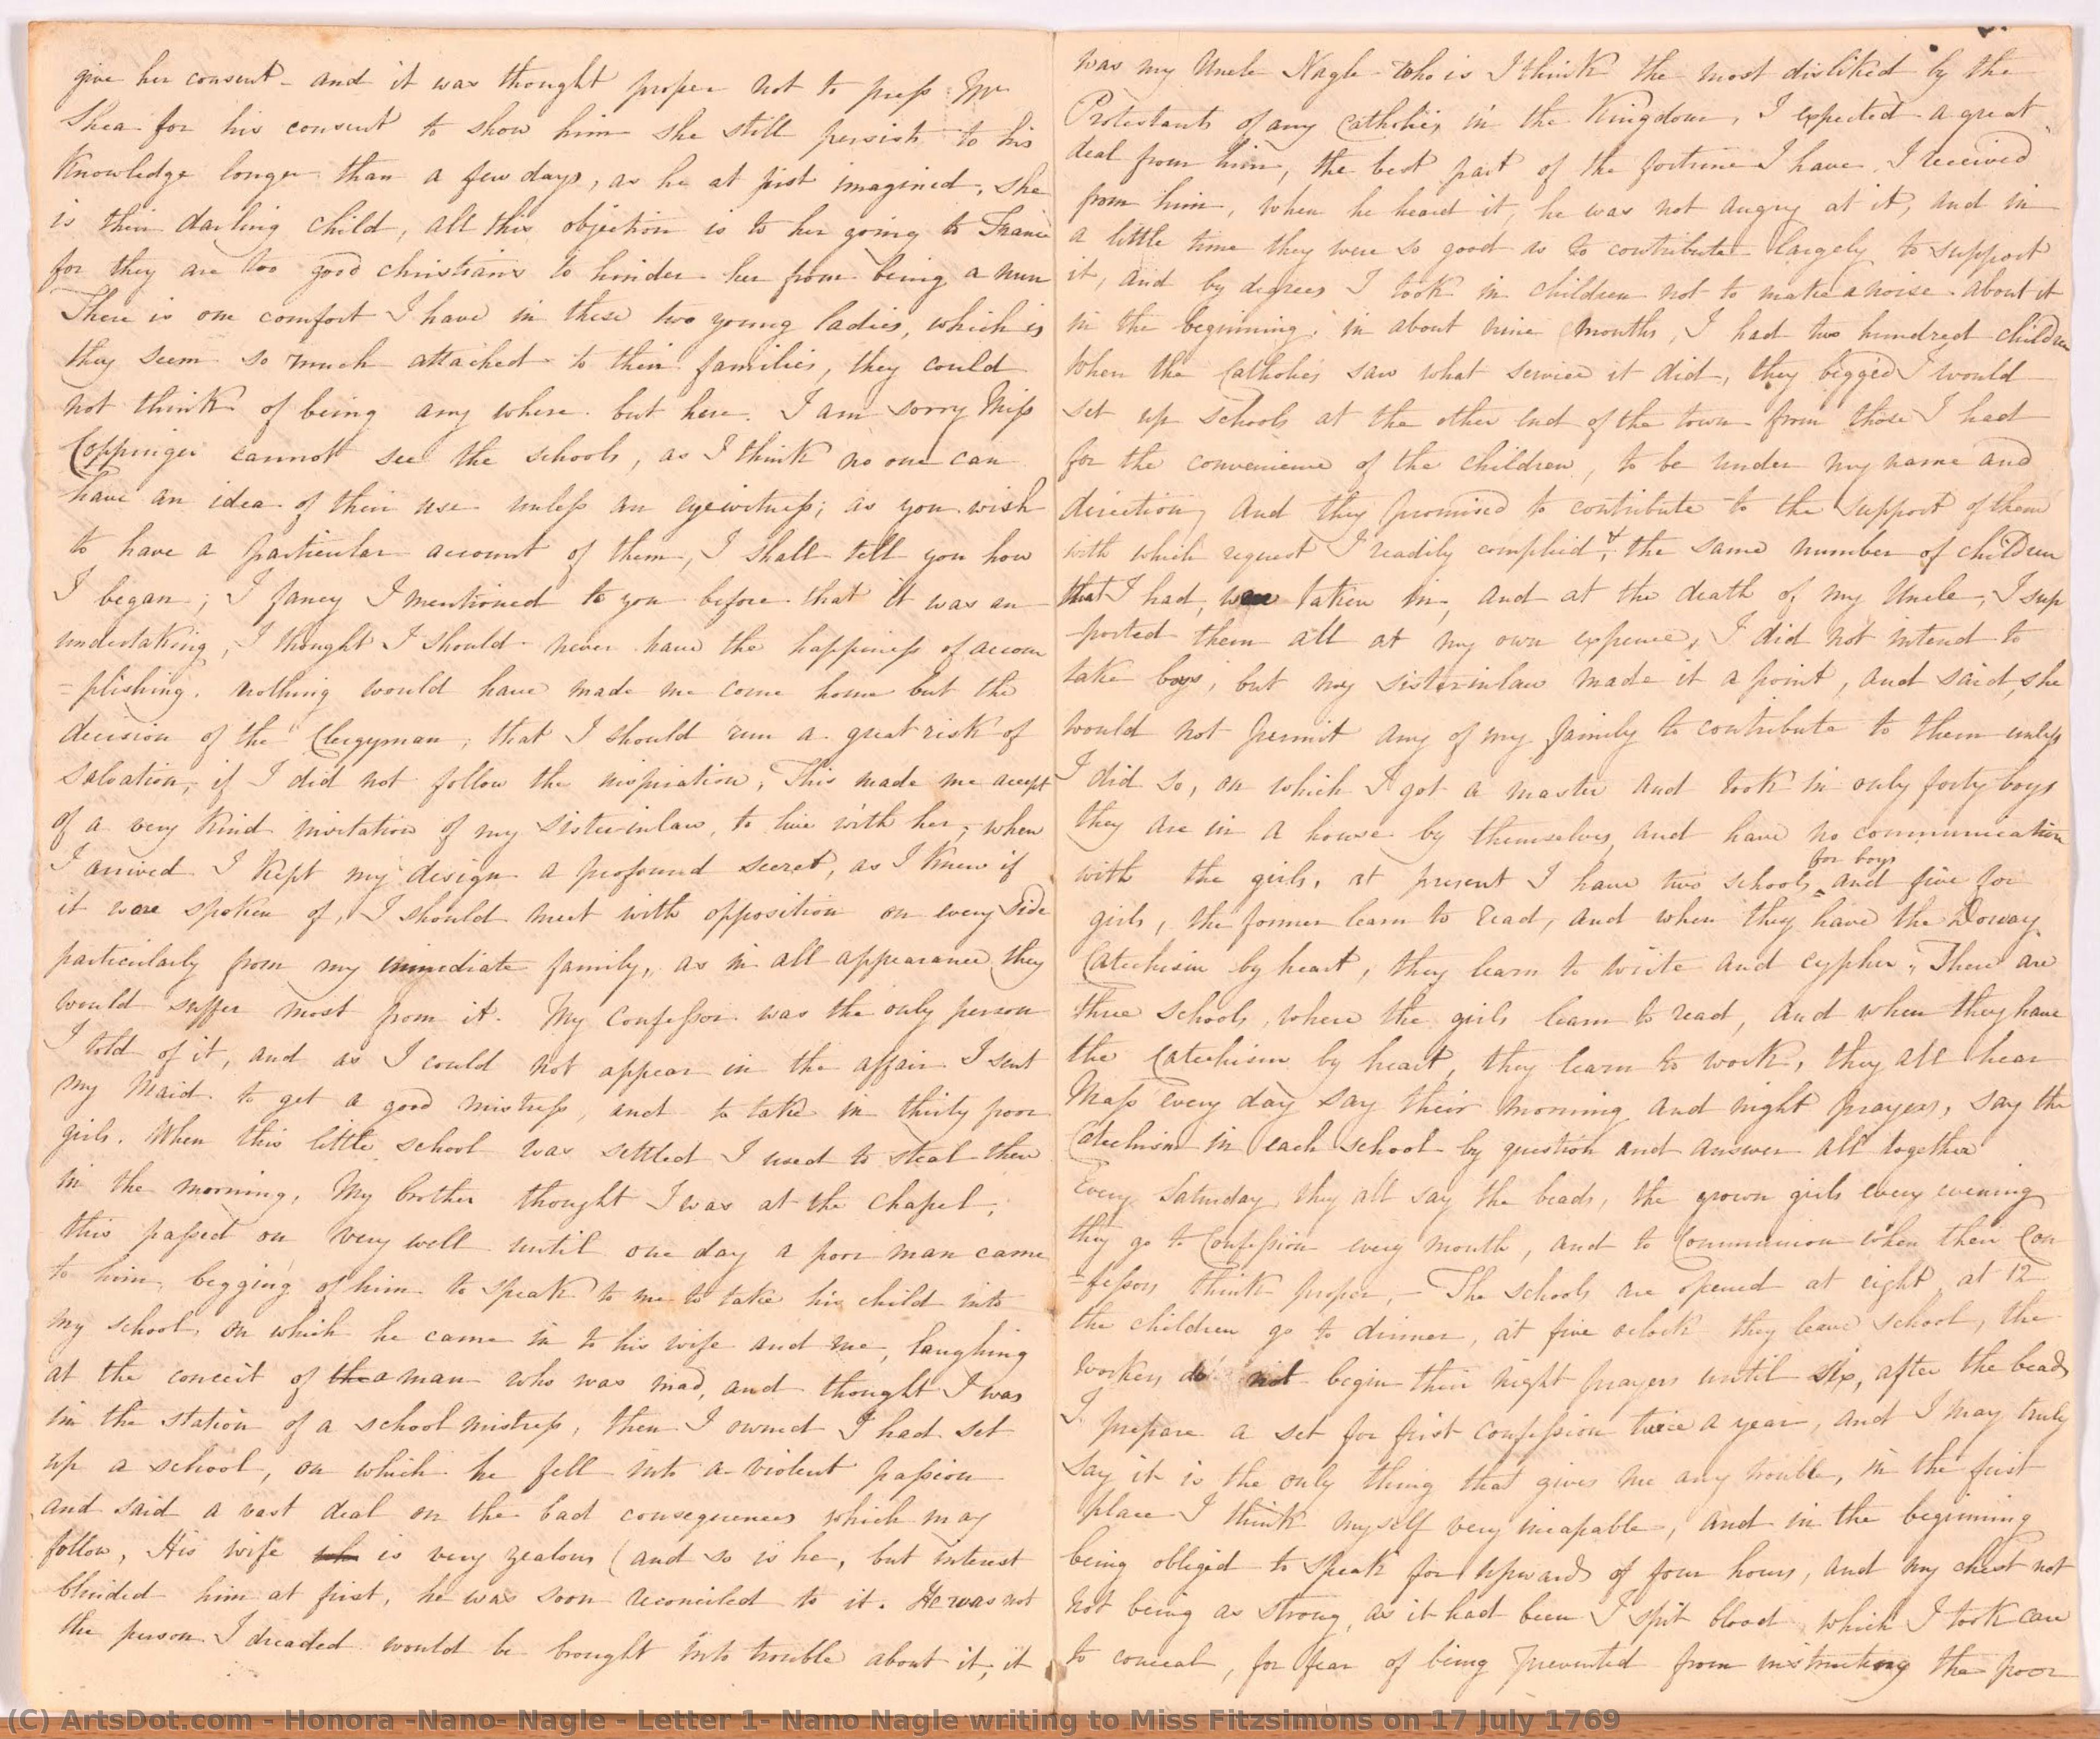 give her consent - and it was thought proper not to press Mr
Shea for his consent to show him she still persists to his
Knowledge longer than a few days, as he at first imagined, she
is their darling child, all this objection is to her going to France
for they are too good christians to hinder her from being a nun
There is one comfort I have in these two young ladies, which is
they seem so much attached to their families, they could
not think of being any where but here. I am sorry Miss
Coppinger cannot see the schools, as I think no one can
have an idea of their use unless an eyewitness; as you wish
to have a particular account of them, I shall tell you how
I began; I fancy I mentioned to you before that it was an
undertaking, I thought I should never have the happiness of accom
=plishing. nothing would have made me come home but the
decision of the Clergyman; that I should run a great risk of
salvation, if I did not follow the inspiration, This made me accept
of a very kind invitation of my sister inlaw, to live with her, when
I arrived I kept my design a profound secret, as I knew if
it were spoken of, I should meet with opposition on every side
particularly from my immediate family, as in all appearance they
would suffer most from it. My confessor was the only person
I told of it, and as I could not appear in the affair I sent
my Maid to get a good mistress, and to take in thirty poor
girls. When this little school was settled I used to steal there
in the morning, My brother thought I was at the chapel,
this passed on very well until one day a poor man came
to him, begging of him to speak to me to take his child into
my school, on which he came in to his wife and me, laughing
at the conceit of the a man who was mad, and thought I was
in the station of a school mistress, then I owned I had set
up a school, on which he fell into a violent passion
and said a vast deal on the bad consequences which may
follow, His wife is very zealous (and so is he, but interest
blinded him at first, he was soon reconciled to it. He was not
the person I dreaded would be brought into trouble about it, it
was my Uncle Nagle who is I think the most disliked by the
Protestants of any Catholics in the Kingdom, I expected a great
deal from him, the best part of the fortune I have I received
from him, when he heard it, he was not angry at it, and in
a little time they were so good as to contribute largely to support
it, and by degrees I took in children not to make a noise about it
in the beginning, in about nine months, I had two hundred children
When the Catholics saw what service it did, they begg'ed I would
set up schools at the other end of the town from those I had
for the convenience of the children, to be under my name and
direction, and they promised to contribute to the support of them
with which request I readily complied, & the same number of children
that I had, were taken in, and at the death of my Uncle, I sup
ported them all at my own expence, I did not intend to
take boys, but my sister inlaw made it a point, and said, she
would not permit any of my family to contribute to them unless
I did so, on which I got a master and took in only forty boys
they are in a house by themselves, and have no communication
with the girls, at present I have two schools for boys and five for
girls, the former learn to read, and when they have the Doway
Catechism by heart, they learn to write and cypher. There are
three schools, where the girls learn to read, and when they have
the Catechism by heart, they learn to work, they all hear
Mass every day say their morning and night prayers, say the
Catechism in each school by question and answer all together
Every Saturday they all say the beads, the grown girls every evening
they go to Confession every month, and to Communion when their Con
=fessors think proper. - The schools are opened at eight, at 12
the children go to dinner, at five oclock they leave school, the
workers do not begin their night prayers until six, after the beads
I prepare a set for first confession twice a year, and I may truly
say it is the only thing that gives me any trouble, in the first
place I think myself very incapable, and in the beginning
being obliged to speak for upwards of four hours, and my chest not
not being as strong, as it had been I spit blood, which I took care
to conceal, for fear of being prevented from instructing the poor
(C) ArtsDot.com - Honora -Nano- Nagle - Letter 1- Nano Nagle writing to Miss Fitzsimons on 17 July 1769